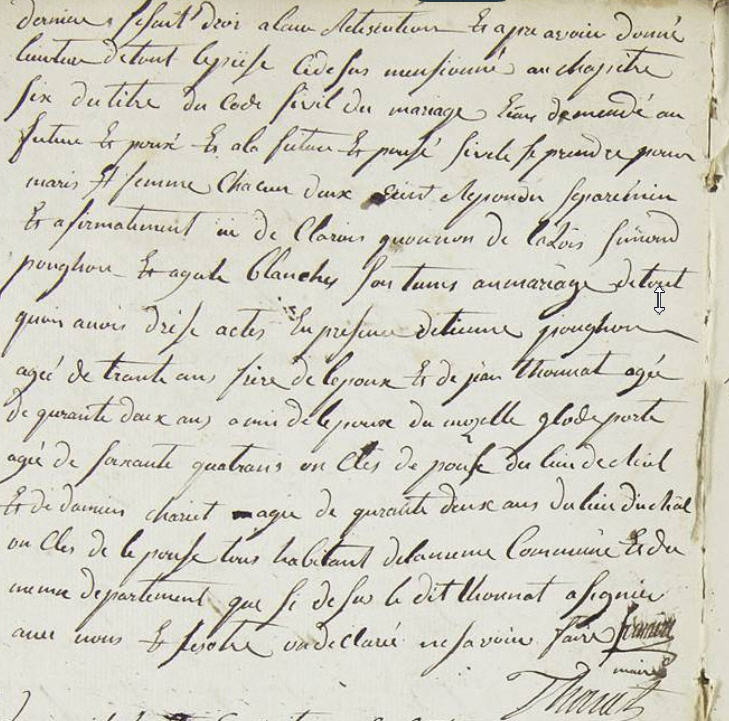 dernier fesant droi a leur Requisition Et apre avoir donné
lecteur de tout le piese Cidesus mensionné au chapitre
six du titre du Code sivil du mariage Een demendé au
futur Et pousé Et a la futur Et pousé sivele se prendre pour
maris Et femme Chacun deux eient Repondu separémen
Et afirmatiment de Clarons quounon de la Lois simond
poughon Et agate blanches son tunis au mariage de tout
quoi avons drése actes En présence detienne poughon
ageé de trante ans frère de lepoux Et de jean Thonnat ageé
de quarante deux ans amin de lepoux du mozelle glode porte
ageé de soixante quatrans on Cles de pouse du lieu de chal
Et de damien chariet agee de quarante deux ans du lieu du chal
on Cles de le pouse tous habitant de la meme Commune Et du
meme departement que si desu le dit thonnat a signier
avec nous Et les otre on declarié ne savoir faire
maire
Thonat